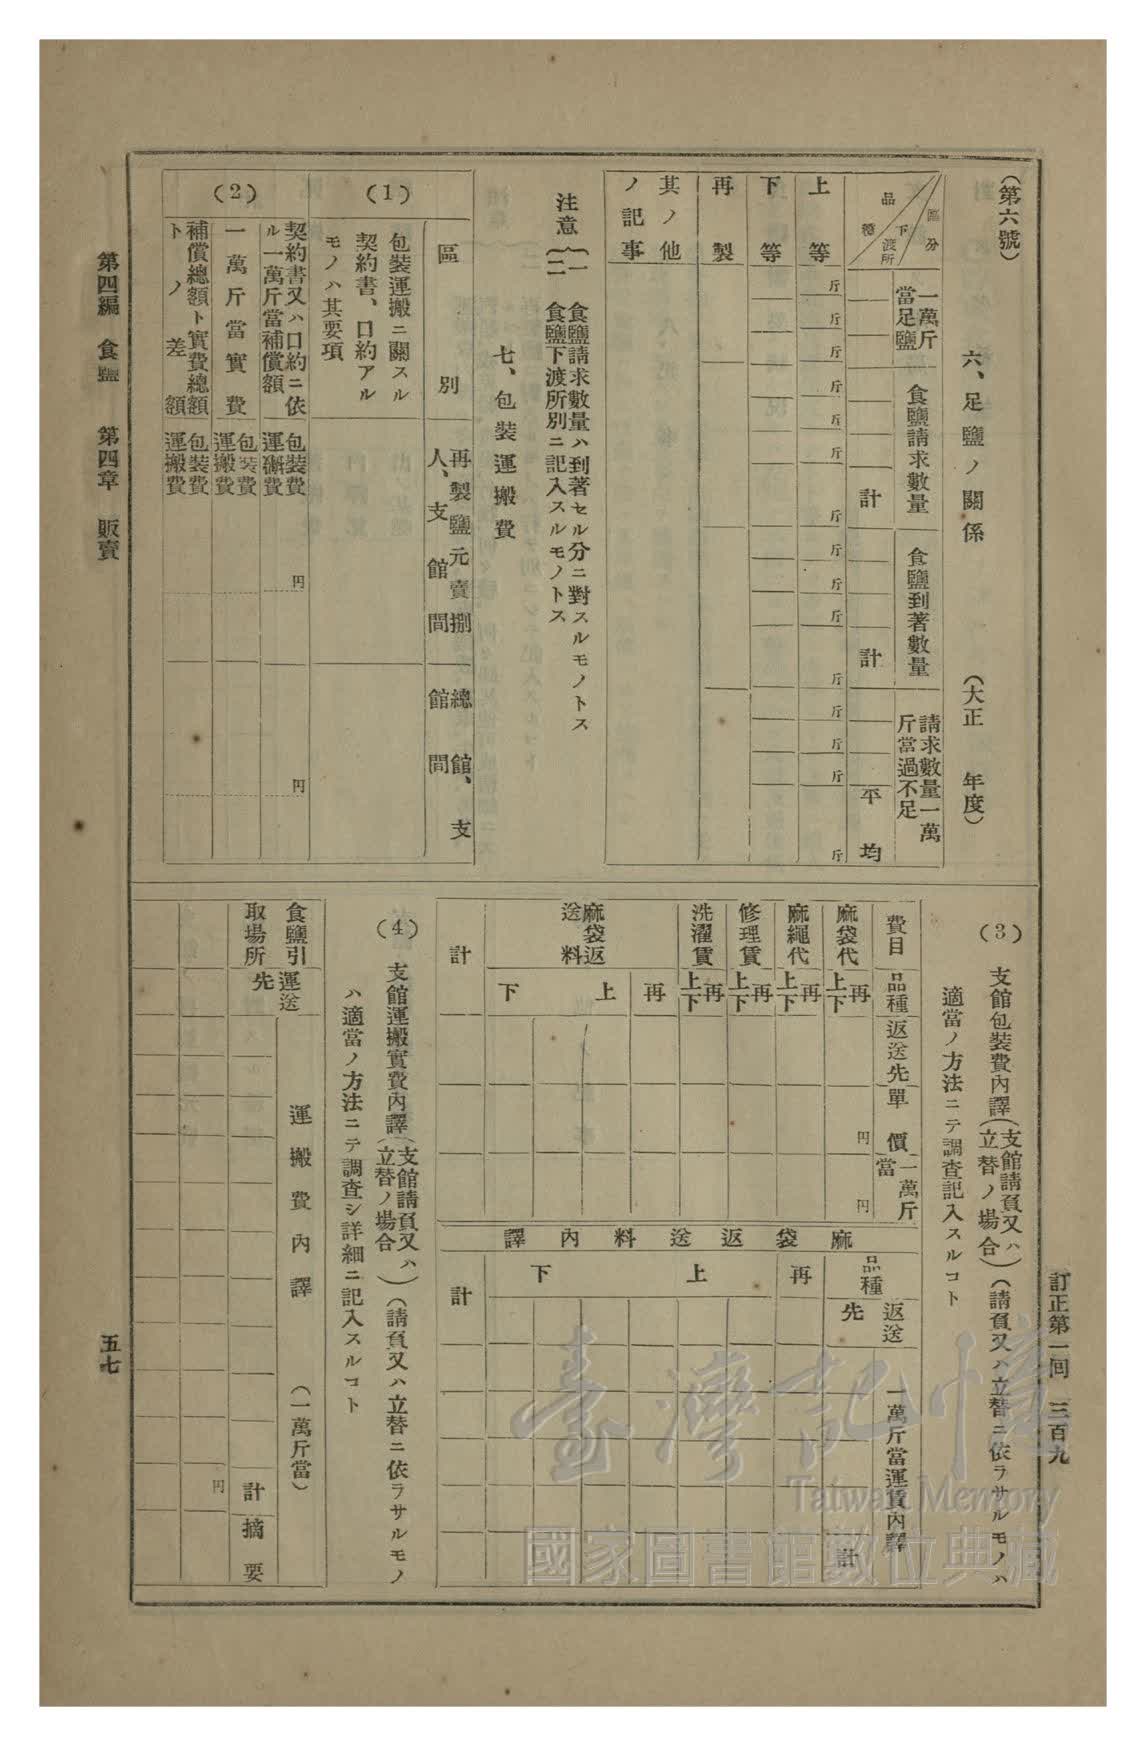 訂正第一囘 三百九
(第六號)
六、足鹽ノ關係 (大正 年度)
區分
下渡所
品種
一萬斤當足鹽
食鹽請求數量
計
食鹽到著數量
計
請求數量一萬斤當過不足
平均
上等
斤 斤 斤 斤 斤 斤 斤 斤 斤 斤 斤 斤 斤 斤 斤
下等
再製
其ノ他ノ記事
注意
一 食鹽請求數量ハ到著セル分ニ對スルモノトス
二 食鹽下渡所別ニ記入スルモノトス
七、包裝運搬費
區別
再製鹽元賣捌人、支館間
總館、支館間
(1)
包裝運搬ニ關スル契約書、口約アルモノハ其要項
(2)
契約書又ハ口約ニ依ル一萬斤當補償額
包裝費
運搬費
円
円
一萬斤當實費
包裝費
運搬費
補償總額ト實費總額トノ差額
包裝費
運搬費
(3) 支館包裝費內譯(支館請負又ハ立替ノ場合)(請負又ハ立替ニ依ラサルモノハ
適當ノ方法ニテ調査記入スルコト
費目
品種
返送先
單價
一萬斤當
麻袋代
再上下
円
円
麻繩代
再上下
修理賃
再上下
洗濯賃
再上下
麻袋返送料
再
上
下
計
麻袋返送料內譯
品種
返送先
一萬斤當運賃內譯
計
再
上
下
計
(4) 支館運搬實費內譯(支館請負又ハ立替ノ場合)(請負又ハ立替ニ依ラサルモノ
ハ適當ノ方法ニテ調査シ詳細ニ記入スルコト
食鹽引取場所
運送先
運搬費內譯 (一萬斤當)
計
摘要
円
第四編 食鹽 第四章 販賣
五七
臺灣記憶
Taiwan Memory
國家圖書館數位典藏